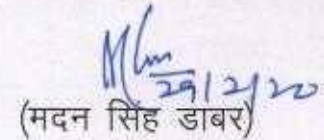 29/2/20
(मदन सिंह डाबर)